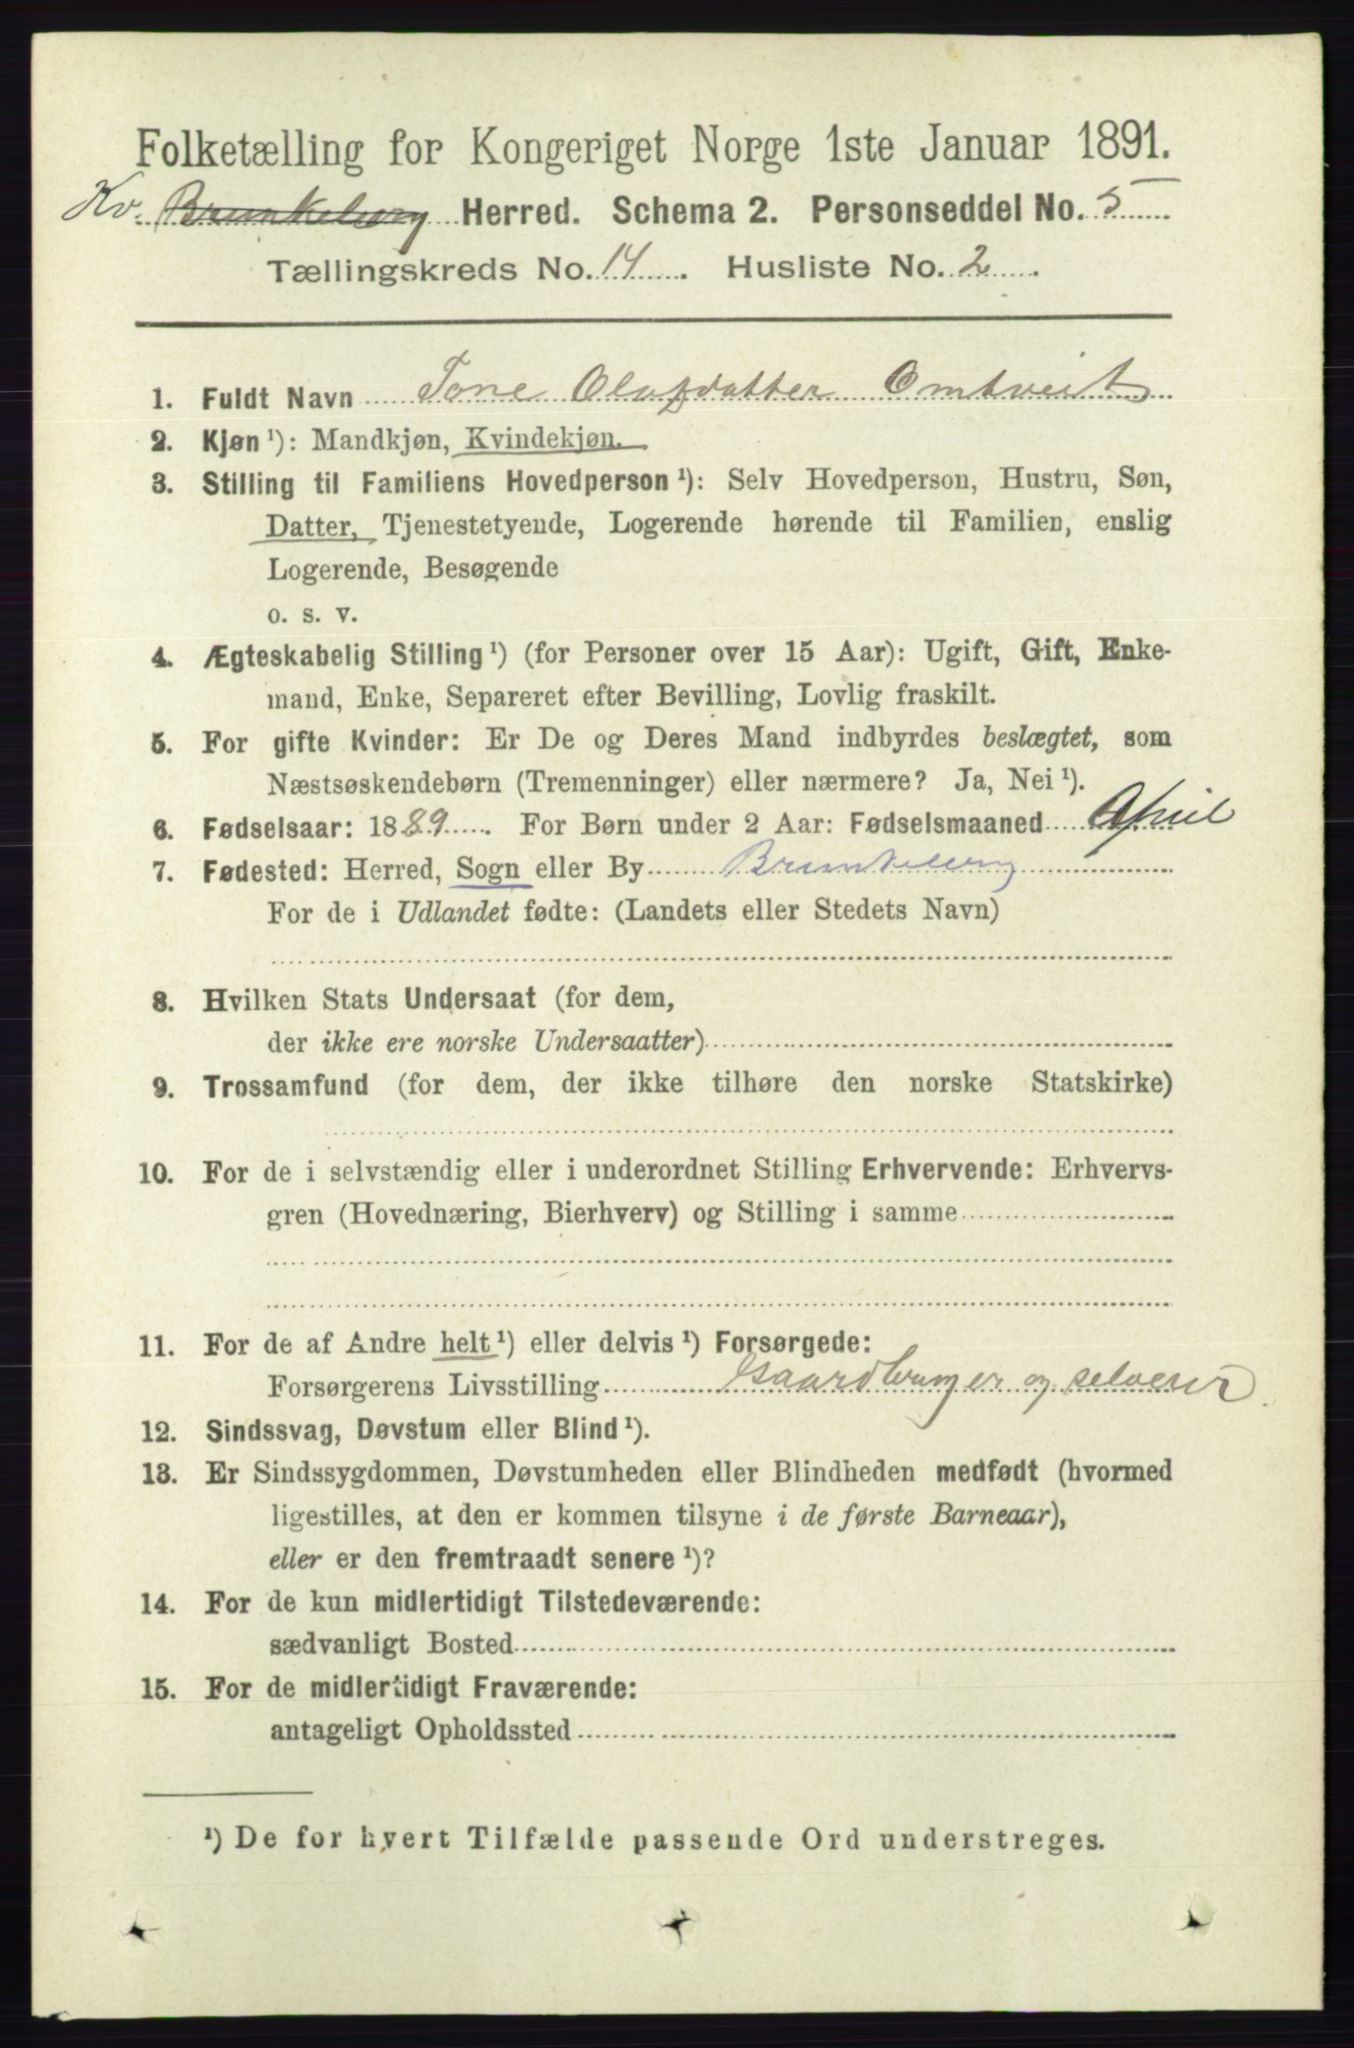 Folketælling for Kongeriget Norge 1ste Januar 1891.
Kv. Brunkeberg Herred. Schema 2. Personseddel No. 5
Tællingskreds No. 14. Husliste No. 2.
1. Fuldt Navn Tone Olafdatter Omtveit
2. Kjøn ¹): Mandkjøn, Kvindekjøn.
3. Stilling til Familiens Hovedperson ¹): Selv Hovedperson, Hustru, Søn,
Datter, Tjenestetyende, Logerende hørende til Familien, enslig
Logerende, Besøgende
o. s. v.
4. Ægteskabelig Stilling ¹) (for Personer over 15 Aar): Ugift, Gift, Enke-
mand, Enke, Separeret efter Bevilling, Lovlig fraskilt.
5. For gifte Kvinder: Er De og Deres Mand indbyrdes beslægtet, som
Næstsøskendebørn (Tremenninger) eller nærmere? Ja, Nei ¹).
6. Fødselsaar: 1889. For Børn under 2 Aar: Fødselsmaaned April
7. Fødested: Herred, Sogn eller By Brunkeberg
For de i Udlandet fødte: (Landets eller Stedets Navn)
8. Hvilken Stats Undersaat (for dem,
der ikke ere norske Undersaatter)
9. Trossamfund (for dem, der ikke tilhøre den norske Statskirke)
10. For de i selvstændig eller i underordnet Stilling Erhvervende: Erhvervs-
gren (Hovednæring, Bierhverv) og Stilling i samme
11. For de af Andre helt ¹) eller delvis ¹) Forsørgede:
Forsørgerens Livsstilling Gaardbruger og selveier.
12. Sindssvag, Døvstum eller Blind ¹).
13. Er Sindssygdommen, Døvstumheden eller Blindheden medfødt (hvormed
ligestilles, at den er kommen tilsyne i de første Barneaar),
eller er den fremtraadt senere ¹)?
14. For de kun midlertidigt Tilstedeværende:
sædvanligt Bosted
15. For de midlertidigt Fraværende:
antageligt Opholdssted
¹) De for hvert Tilfælde passende Ord understreges.